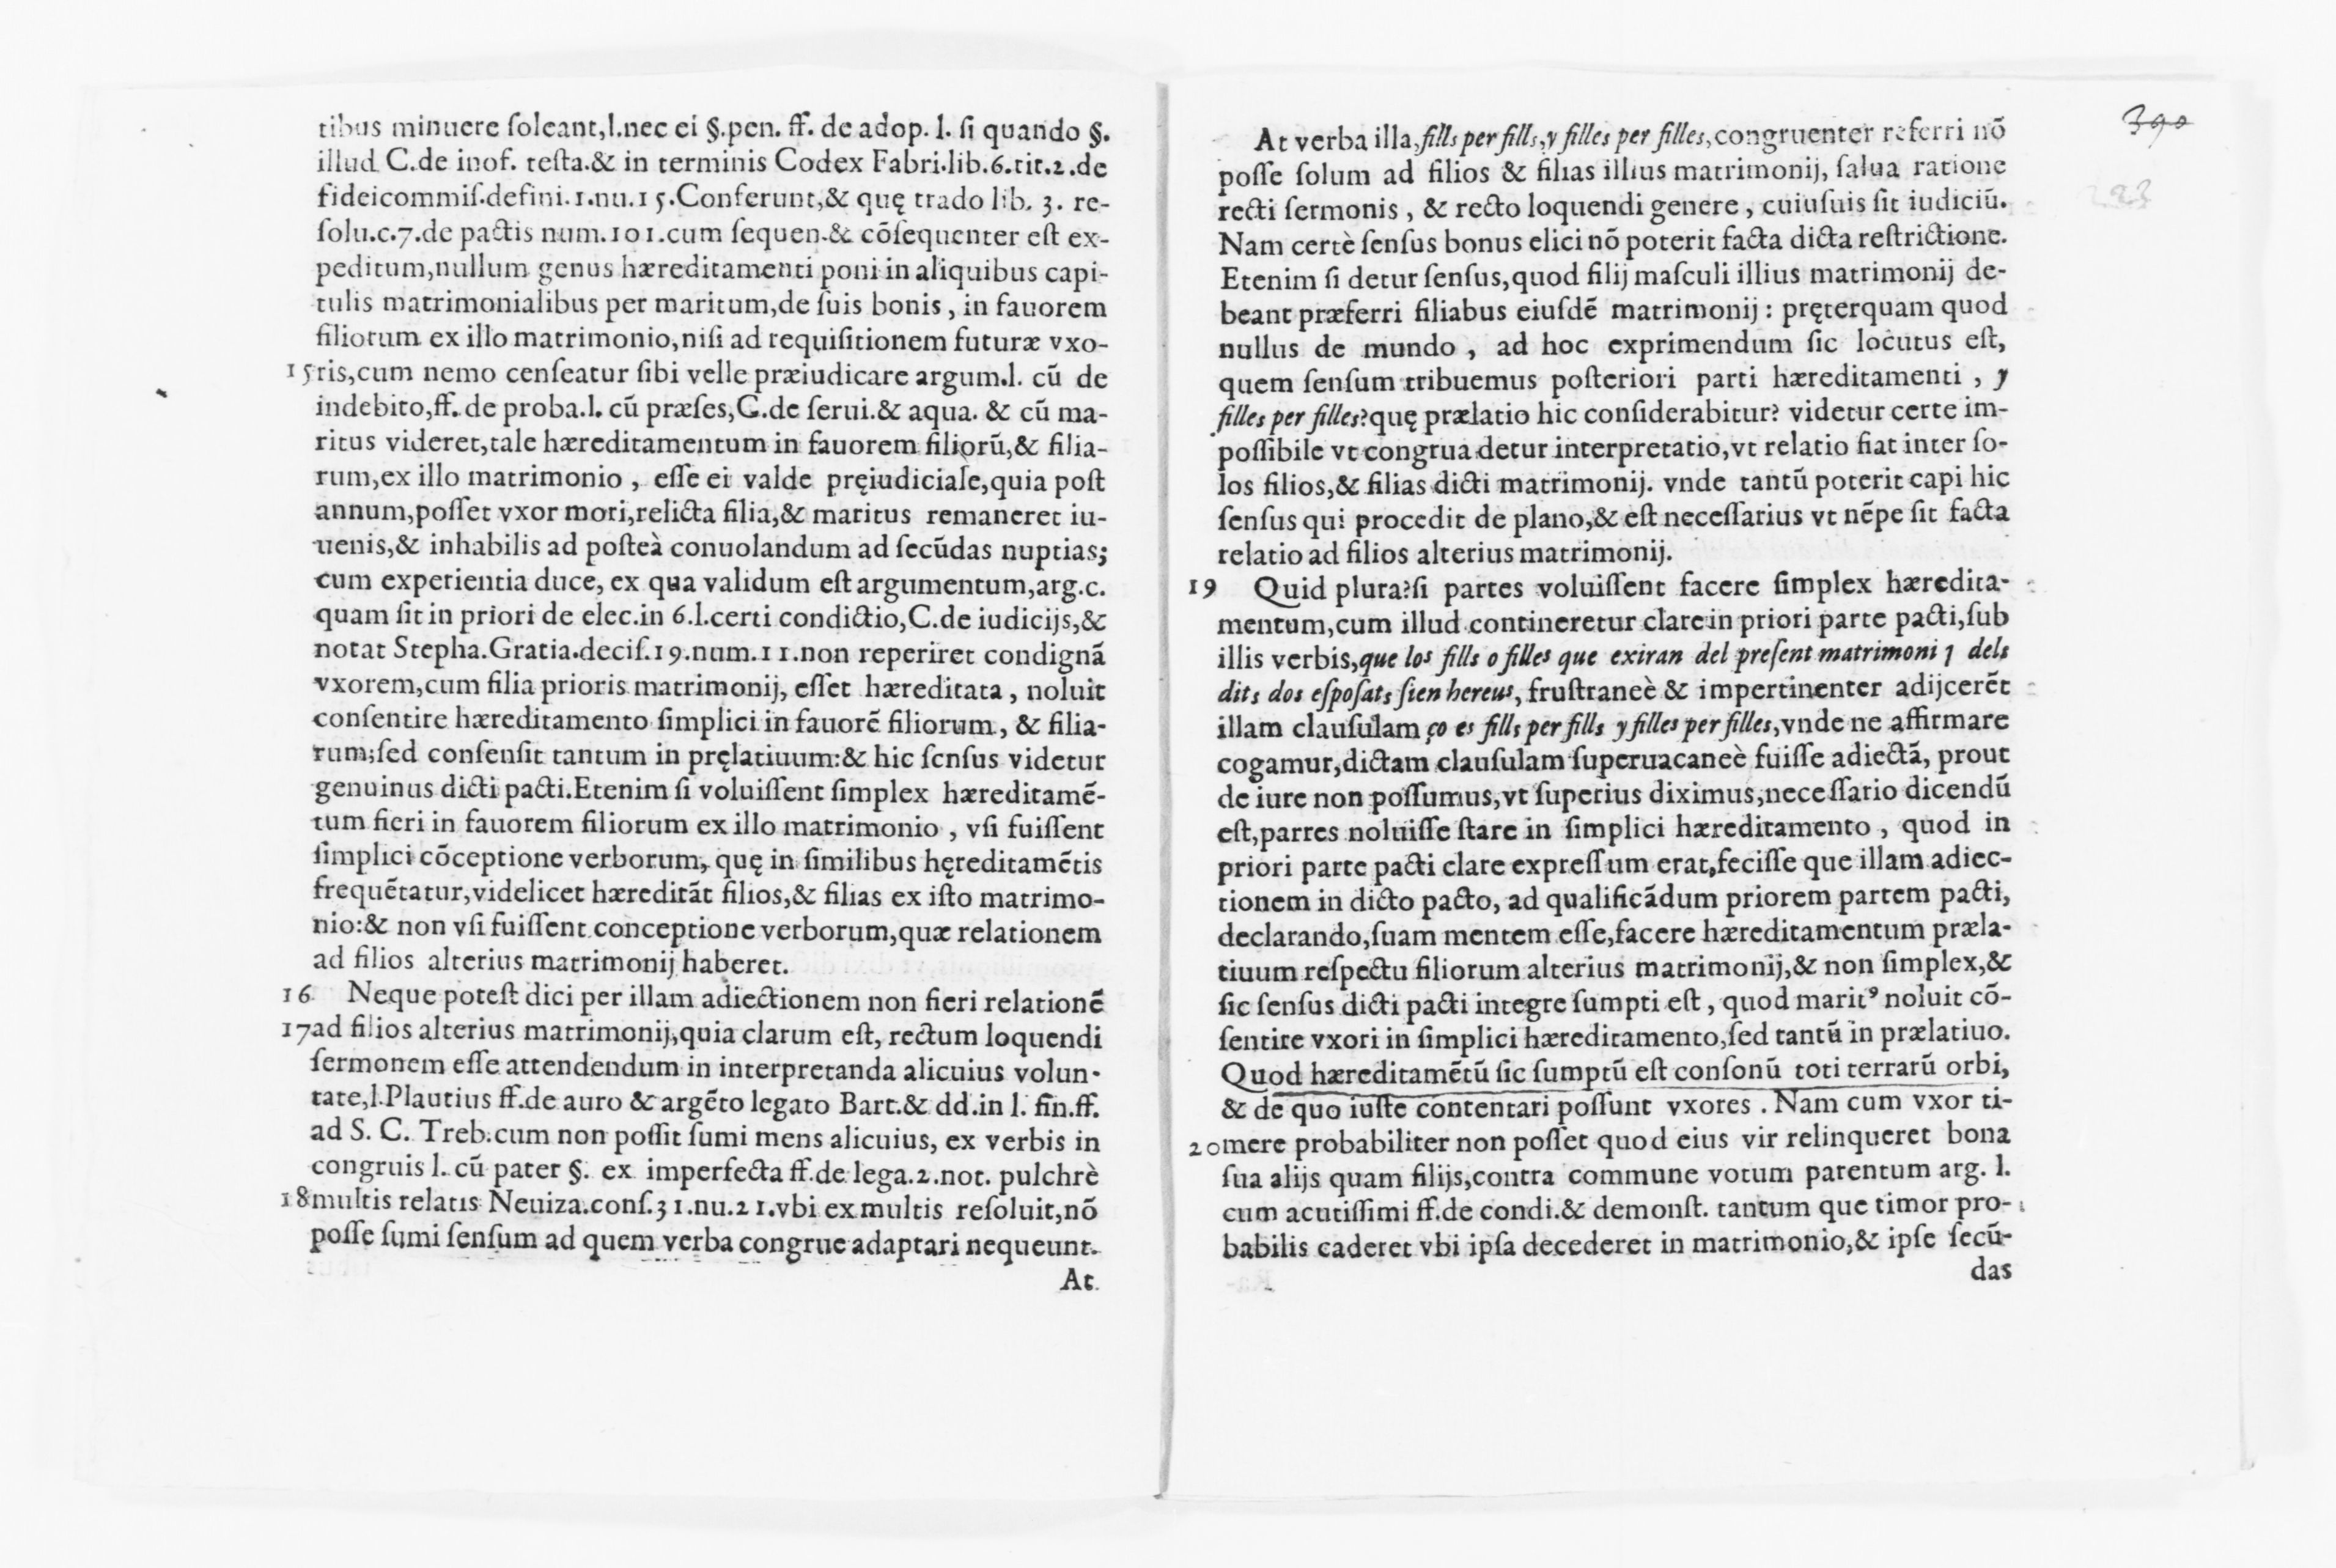 tibus minuere ſoleant,l.nec ei §.pen. ff. de adop. l. ſi quando §.
illud C.de inof. teſta.& in terminis Codex Fabri.lib.6.tit.2.de
fideicommiſ.defini.1.nu.15.Conferunt,& quę trado lib. 3. re-
ſolu.c.7.de pactis num.101.cum ſequen.& cōſequenter eſt ex-
peditum,nullum genus hæreditamenti poni in aliquibus capi-
tulis matrimonialibus per maritum,de ſuis bonis , in fauorem
filiorum ex illo matrimonio,niſi ad requiſitionem futuræ vxo-
15 ris,cum nemo cenſeatur ſibi velle præiudicare argum.l. cū de
indebito,ff. de proba.l. cū præſes,C.de ſerui.& aqua. & cū ma-
ritus videret,tale hæreditamentum in fauorem filiorū,& filia-
rum,ex illo matrimonio , eſſe ei valde pręiudiciale,quia poſt
annum,poſſet vxor mori,relicta filia,& maritus remaneret iu-
uenis,& inhabilis ad poſteà conuolandum ad ſecūdas nuptias;
cum experientia duce, ex qua validum eſt argumentum,arg.c.
quam ſit in priori de elec.in 6.l.certi condictio,C.de iudicijs,&
notat Stepha.Gratia.deciſ.19.num.11.non reperiret condignā
vxorem,cum filia prioris matrimonij, eſſet hæreditata , noluit
conſentire hæreditamento ſimplici in fauorē filiorum , & filia-
rum;ſed conſenſit tantum in pręlatiuum:& hic ſenſus videtur
genuinus dicti pacti.Etenim ſi voluiſſent ſimplex hæreditamē-
tum fieri in fauorem filiorum ex illo matrimonio , vſi fuiſſent
ſimplici cōceptione verborum, quę in ſimilibus hęreditamētis
frequētatur,videlicet hæreditāt filios,& filias ex iſto matrimo-
nio:& non vſi fuiſſent conceptione verborum,quæ relationem
ad filios alterius matrimonij haberet.
16 Neque poteſt dici per illam adiectionem non fieri relationē
17 ad filios alterius matrimonij,quia clarum eſt, rectum loquendi
ſermonem eſſe attendendum in interpretanda alicuius volun-
tate,l.Plautius ff.de auro & argēto legato Bart.& dd.in l. fin.ff.
ad S. C. Treb.cum non poſſit ſumi mens alicuius, ex verbis in
congruis l. cū pater §. ex imperfecta ff.de lega.2.not. pulchrè
18 multis relatis Neuiza.conſ.31.nu.21.vbi ex multis reſoluit,nō
poſſe ſumi ſenſum ad quem verba congrue adaptari nequeunt.
At
390
At verba illa,fills per fills,y filles per filles,congruenter referri nō
poſſe ſolum ad filios & filias illius matrimonij, ſalua ratione
recti ſermonis , & recto loquendi genere , cuiuſuis ſit iudiciū.
Nam certè ſenſus bonus elici nō poterit facta dicta reſtrictione.
Etenim ſi detur ſenſus,quod filij maſculi illius matrimonij de-
beant præferri filiabus eiuſdē matrimonij : pręterquam quod
nullus de mundo , ad hoc exprimendum ſic locutus eſt,
quem ſenſum tribuemus poſteriori parti hæreditamenti , y
filles per filles?quę prælatio hic conſiderabitur? videtur certe im-
poſſibile vt congrua detur interpretatio,vt relatio fiat inter ſo-
los filios,& filias dicti matrimonij. vnde tantū poterit capi hic
ſenſus qui procedit de plano,& eſt neceſſarius vt nēpe ſit facta
relatio ad filios alterius matrimonij.
19 Quid plura?ſi partes voluiſſent facere ſimplex hæredita-
mentum,cum illud contineretur clare in priori parte pacti,ſub
illis verbis,que los fills o filles que exiran del preſent matrimoni y dels
dits dos eſpoſats ſien hereus, fruſtraneè & impertinenter adijcerēt
illam clauſulam ço es fills per fills y filles per filles,vnde ne affirmare
cogamur,dictam clauſulam ſuperuacaneè fuiſſe adiectā, prout
de iure non poſſumus,vt ſuperius diximus,neceſſario dicendū
eſt,partes noluiſſe ſtare in ſimplici hæreditamento , quod in
priori parte pacti clare expreſſum erat,feciſſe que illam adiec-
tionem in dicto pacto, ad qualificādum priorem partem pacti,
declarando,ſuam mentem eſſe,facere hæreditamentum præla-
tiuum reſpectu filiorum alterius matrimonij,& non ſimplex,&
ſic ſenſus dicti pacti integre ſumpti eſt , quod maritꝰ noluit cō-
ſentire vxori in ſimplici hæreditamento,ſed tantū in prælatiuo.
Quod hæreditamētū ſic ſumptū eſt conſonū toti terrarū orbi,
& de quo iuſte contentari poſſunt vxores . Nam cum vxor ti-
20 mere probabiliter non poſſet quod eius vir relinqueret bona
ſua alijs quam filijs,contra commune votum parentum arg. l.
cum acutiſſimi ff.de condi.& demonſt. tantum que timor pro-
babilis caderet vbi ipſa decederet in matrimonio,& ipſe ſecū-
das